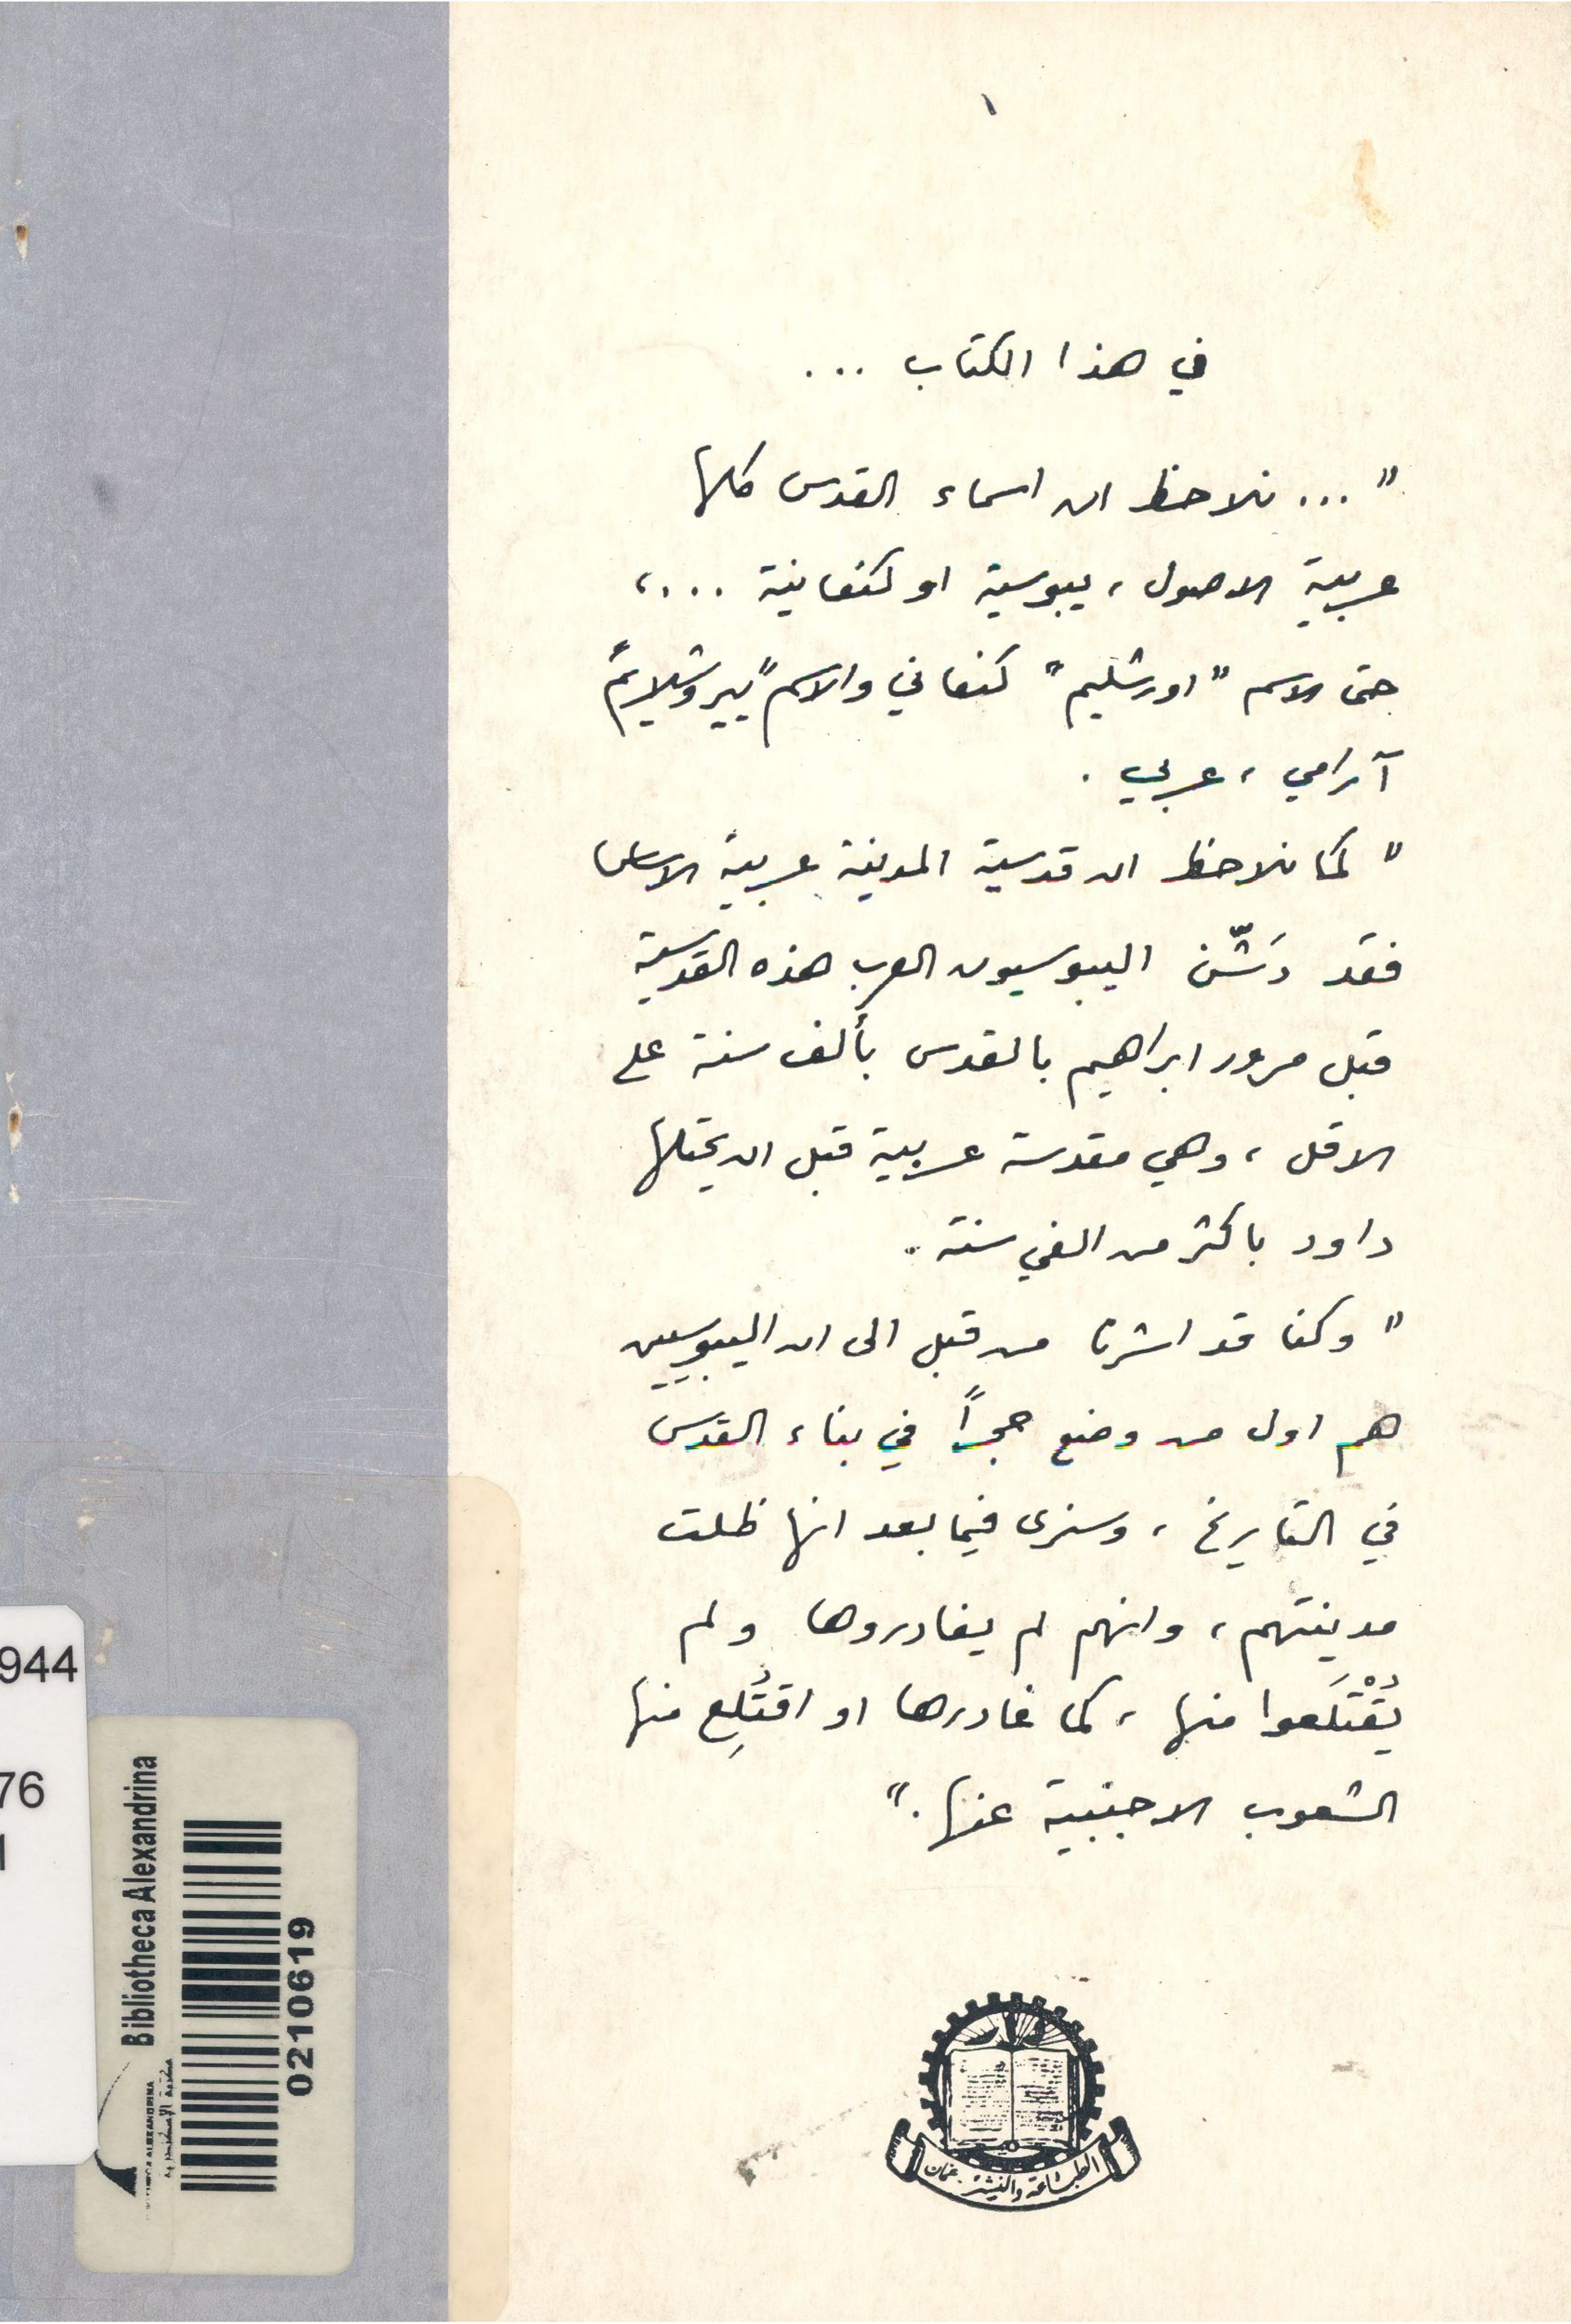 في هذا الكتاب ...
" ... نلاحظ ان اسماء القدس كلها
عربية الاصول ، يبوسية او كنعانية ...،
حتى الاسم "اورشليم" كنعاني والاسم "ييروشلايم"
آرامي ، عربي .
" كما نلاحظ ان قدسية المدينة عربية الاساس
فقد دَشّن اليبوسيون العرب هذه القدسية
قبل مرور ابراهيم بالقدس بألف سنة على
الاقل ، وهي مقدسة عربية قبل ان يحتلها
داود باكثر من الفي سنة .
" وكنا قد اشرنا من قبل الى ان اليبوسيين
هم اول من وضع حجراً في بناء القدس
في التاريخ ، وسنرى فيما بعد انها ظلت
مدينتهم ، وانهم لم يغادروها ولم
يُقْتَلَعوا منها ، كما غادرها او اقتُلِع منها
الشعوب الاجنبية عنها ."
دار
الطباعة والنشر . عمان
944
76
Bibliotheca Alexandrina
0210619
مكتبة الإسكندرية